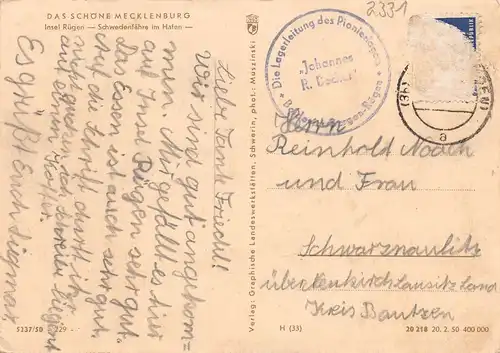 DAS SCHÖNE MECKLENBURG
Insel Rügen — Schwedenfähre im Hafen —
Liebe Tante Friedel!
Wir sind gut angekom=
men. Mir gefällt es hier
auf Insel Rügen sehr gut.
Das Essen ist auch sehr gut.
Auf die Schrift dürft ihr
nicht gucken, denn
auf einem Koffer.
Es grüßt Euch Sigmar
5237/50 229
Verlag: Graphische Landeswerkstätten, Schwerin, phot.: Muszinski
2331
Die Lagerleitung des Pionierlagers
"Johannes
R. Becher"
Rügen
a
Herrn
Reinhold Noack
und Frau
Schwarznaußlitz
über Lausitz Land
Kreis Bautzen
H (33)
20 218 20. 2. 50 400 000